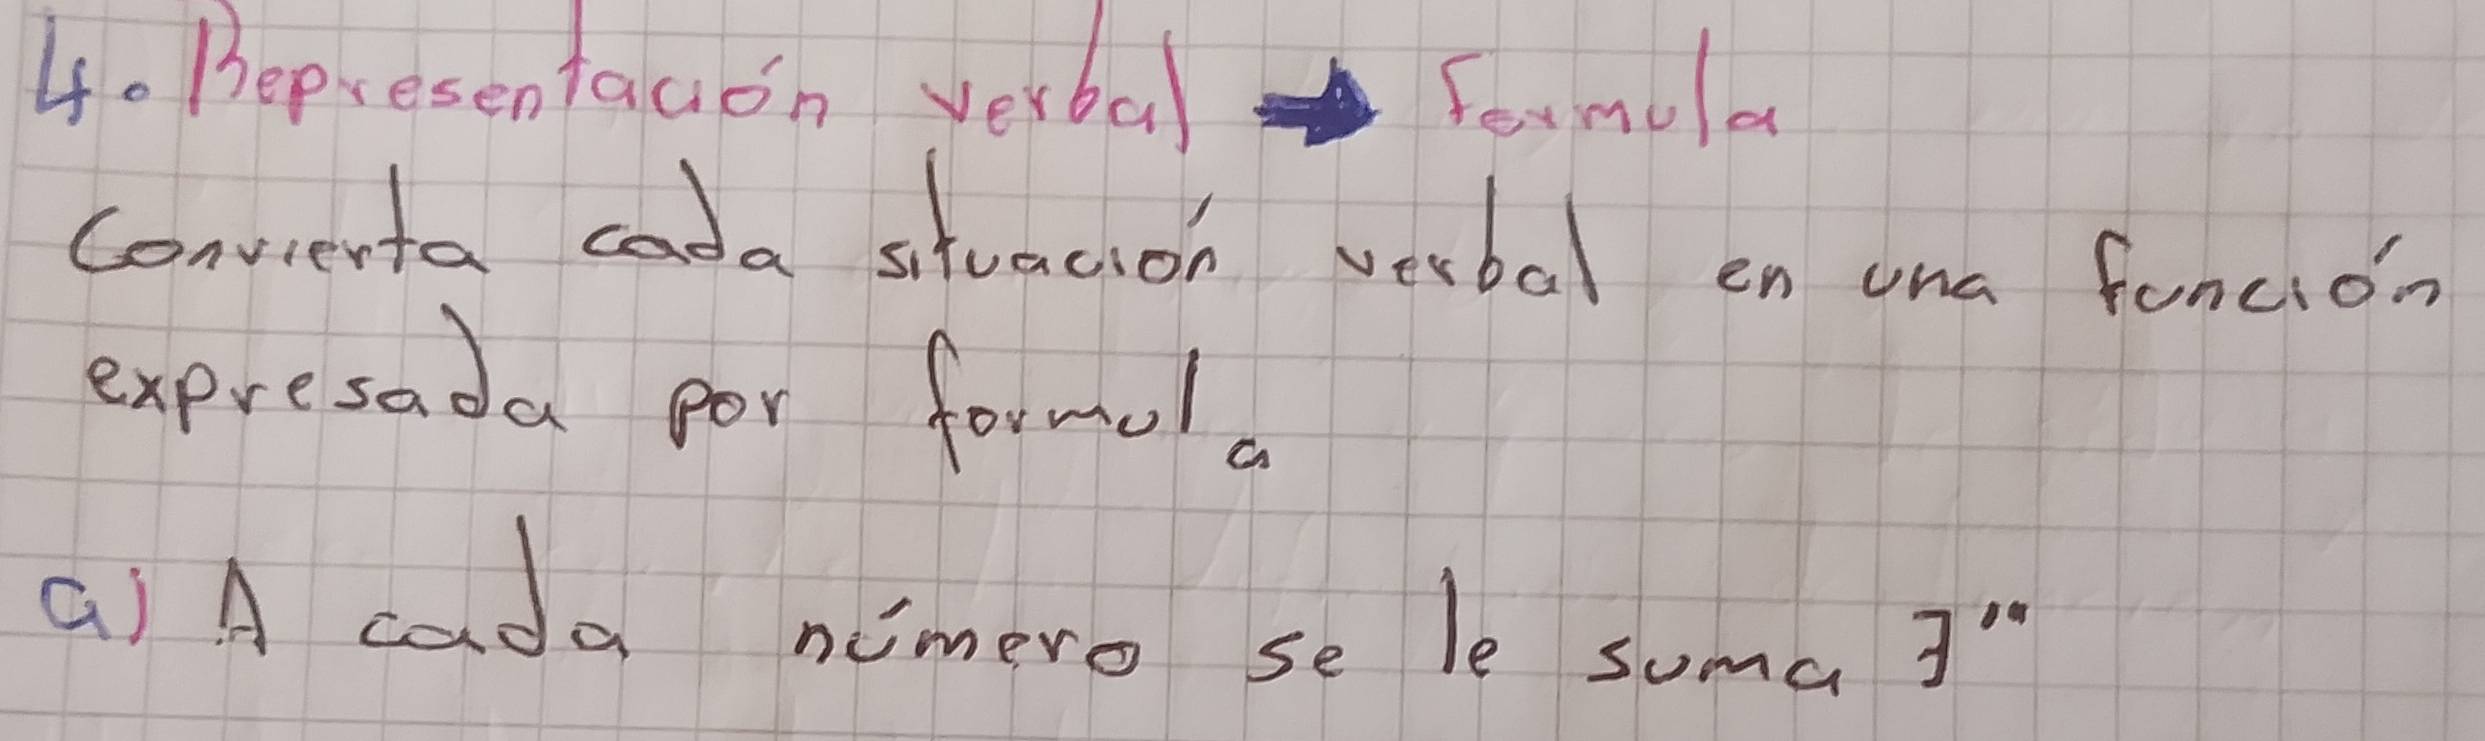 4. Representación verbal ➡ Formula
Convierta cada situación verbal en una función
expresada por formula
a) A cada número se le suma 7"